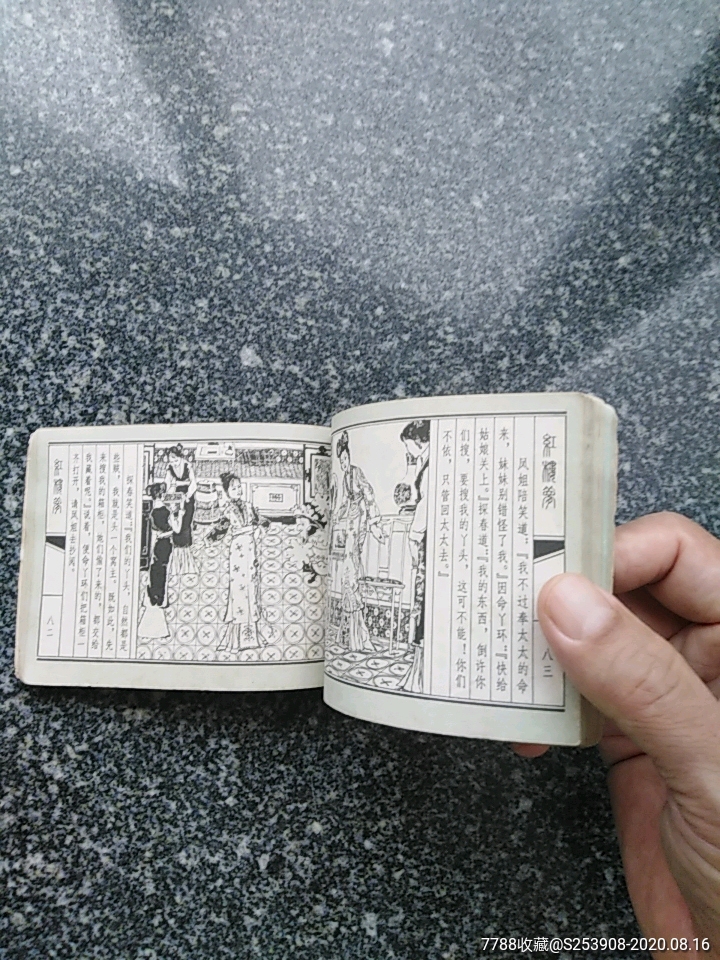 紅樓夢
探春笑道：『我们的丫头，自然都是
些贼，我就是头一个窝主。既如此，先
来搜我的箱柜，她们偷了来的，都交给
我藏着呢。』说着，便命丫环们把箱柜一
齐打开，请凤姐去抄阅。
八二
紅樓夢
凤姐陪笑道：『我不过奉太太的命
来，妹妹别错怪了我。』因命丫环：『快给
姑娘关上。』探春道：『我的东西，倒许你
们搜，要搜我的丫头，这可不能！你们
不依，只管回太太去。』
八三
7788收藏@S253908-2020.08.16